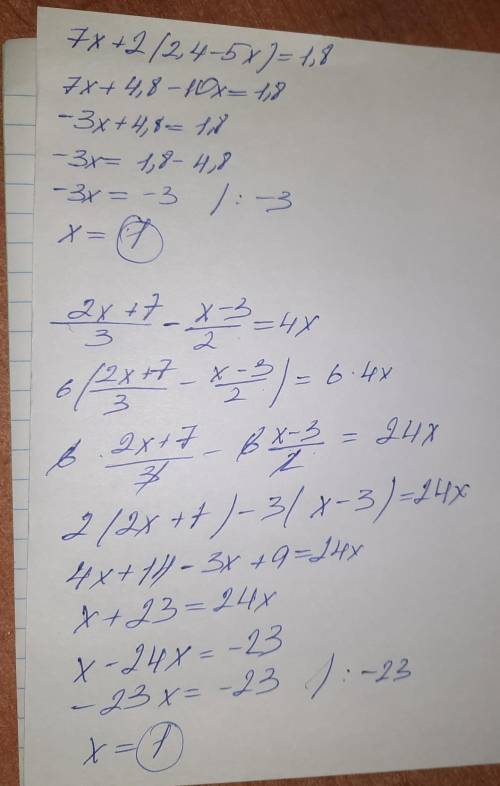 7x+2(2,4-5x)=1,8
7x+4,8-10x=1,8
-3x+4,8=1,8
-3x=1,8-4,8
-3x=-3 /:-3
x=1
(2x+7)/3 - (x-3)/2 = 4x
6((2x+7)/3 - (x-3)/2) = 6·4x
6·(2x+7)/3 - 6 (x-3)/2 = 24x
2(2x+7)-3(x-3)=24x
4x+14-3x+9=24x
x+23=24x
x-24x=-23
-23x=-23 /:-23
x=1